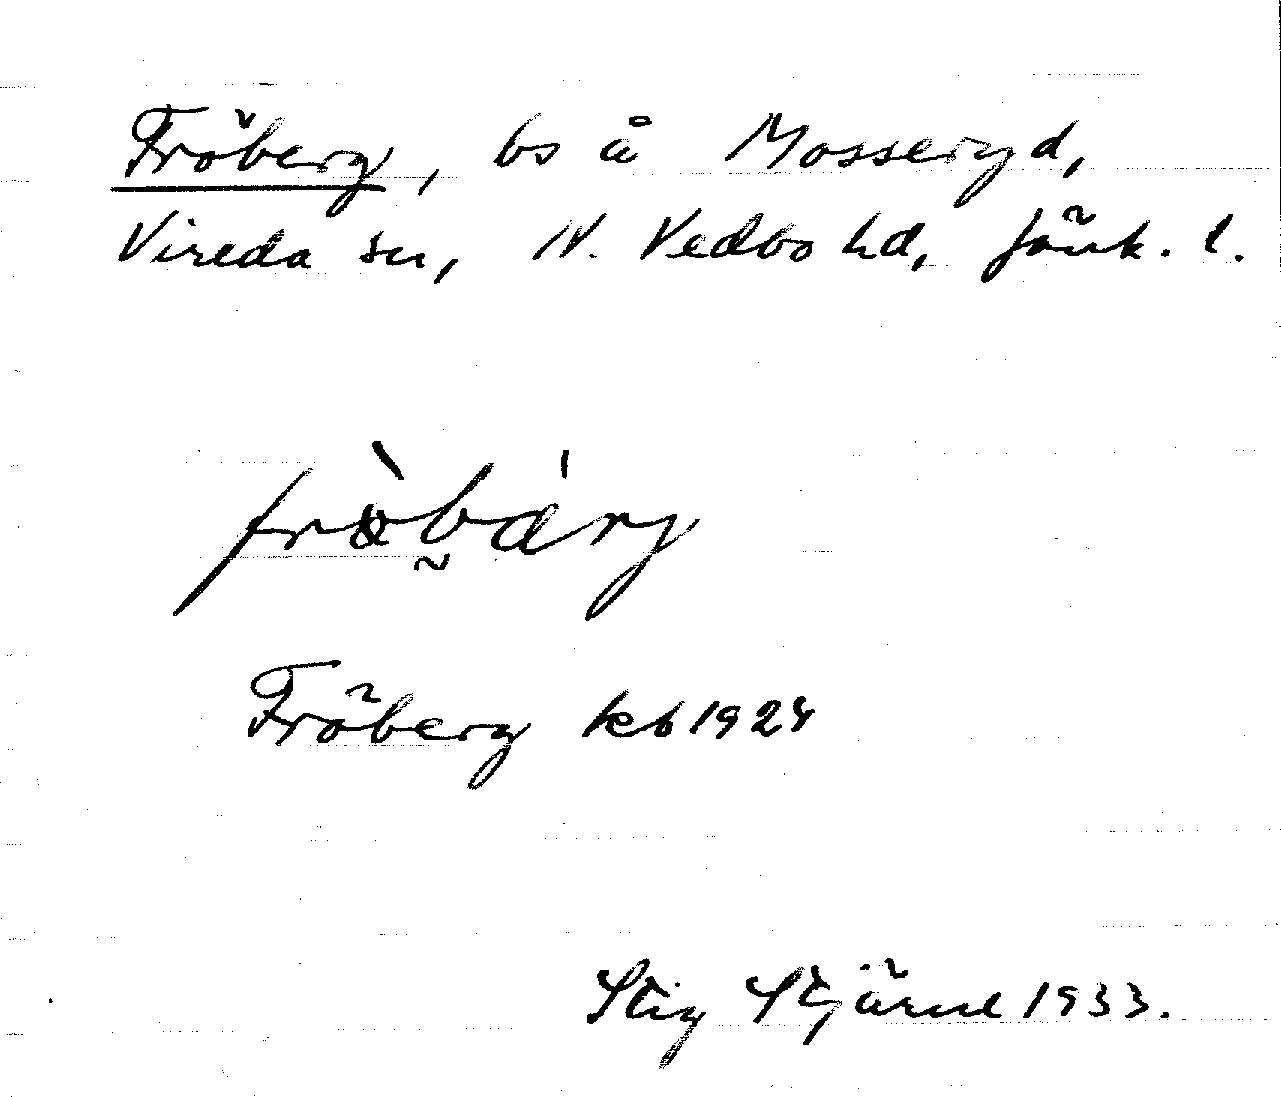 Fröberg, bs å Mosseryd,
Vireda sn, N. Vedbo hd, Jönk. l.
frǿ̀bárj
Fröberg kb 1924
Stig Stjärne 1933.